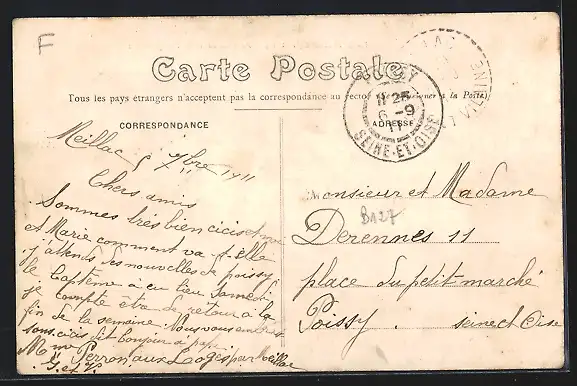 F
Carte Postale
Tous les pays étrangers n'acceptent pas la correspondance au recto à la Poste
CORRESPONDANCE
ADRESSE
POISSY
11 25
6 -9
11
SEINE-ET-OISE
VILAINE
Meillac 7bre 1911
Chers amis
Sommes très bien ici
et Marie comment va t-elle
j'attends des nouvelles de poissy
le baptême a eu lieu Samedi
je compte être de retour à la
fin de la semaine. Nous vous
dit bonjour
Perron aux Loges par Meillac
I. et V.
Monsieur et Madame
B127
Derennes 11
place du petit marché
Poissy. seine et Oise